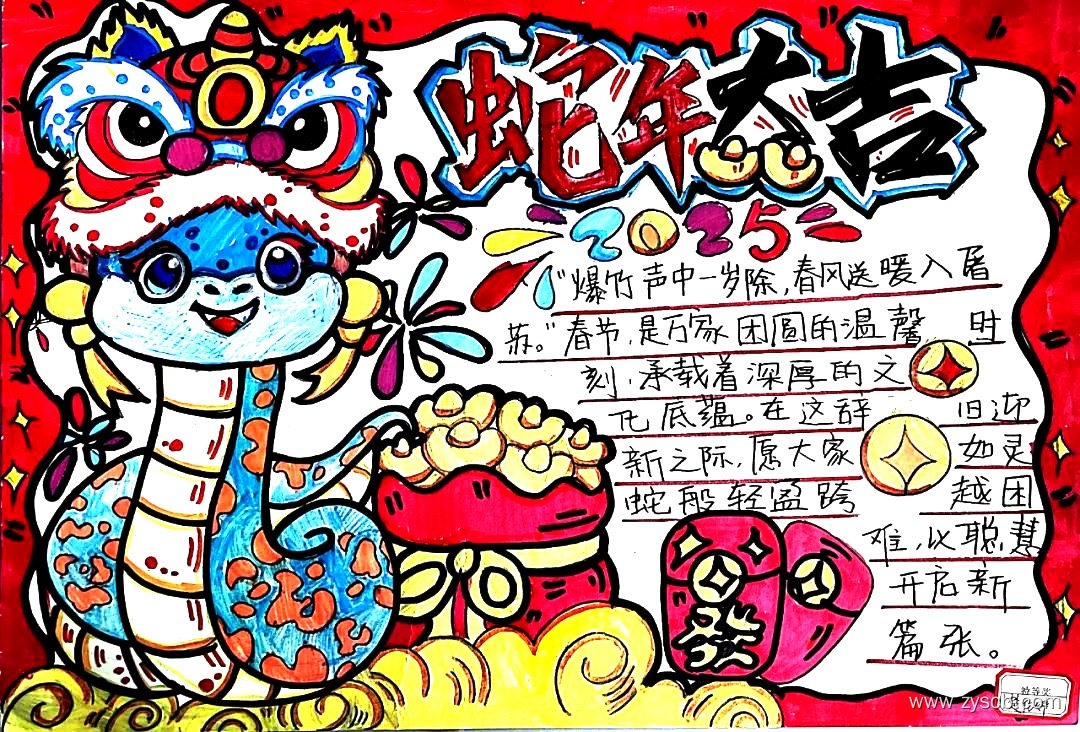 蛇年大吉
2025
"爆竹声中一岁除,春风送暖入屠
苏。"春节,是万家团圆的温馨 时
刻,承载着深厚的文
化底蕴。在这辞 旧迎
新之际,愿大家 如灵
蛇般轻盈跨 越困
难,以聪慧
开启新
篇张。